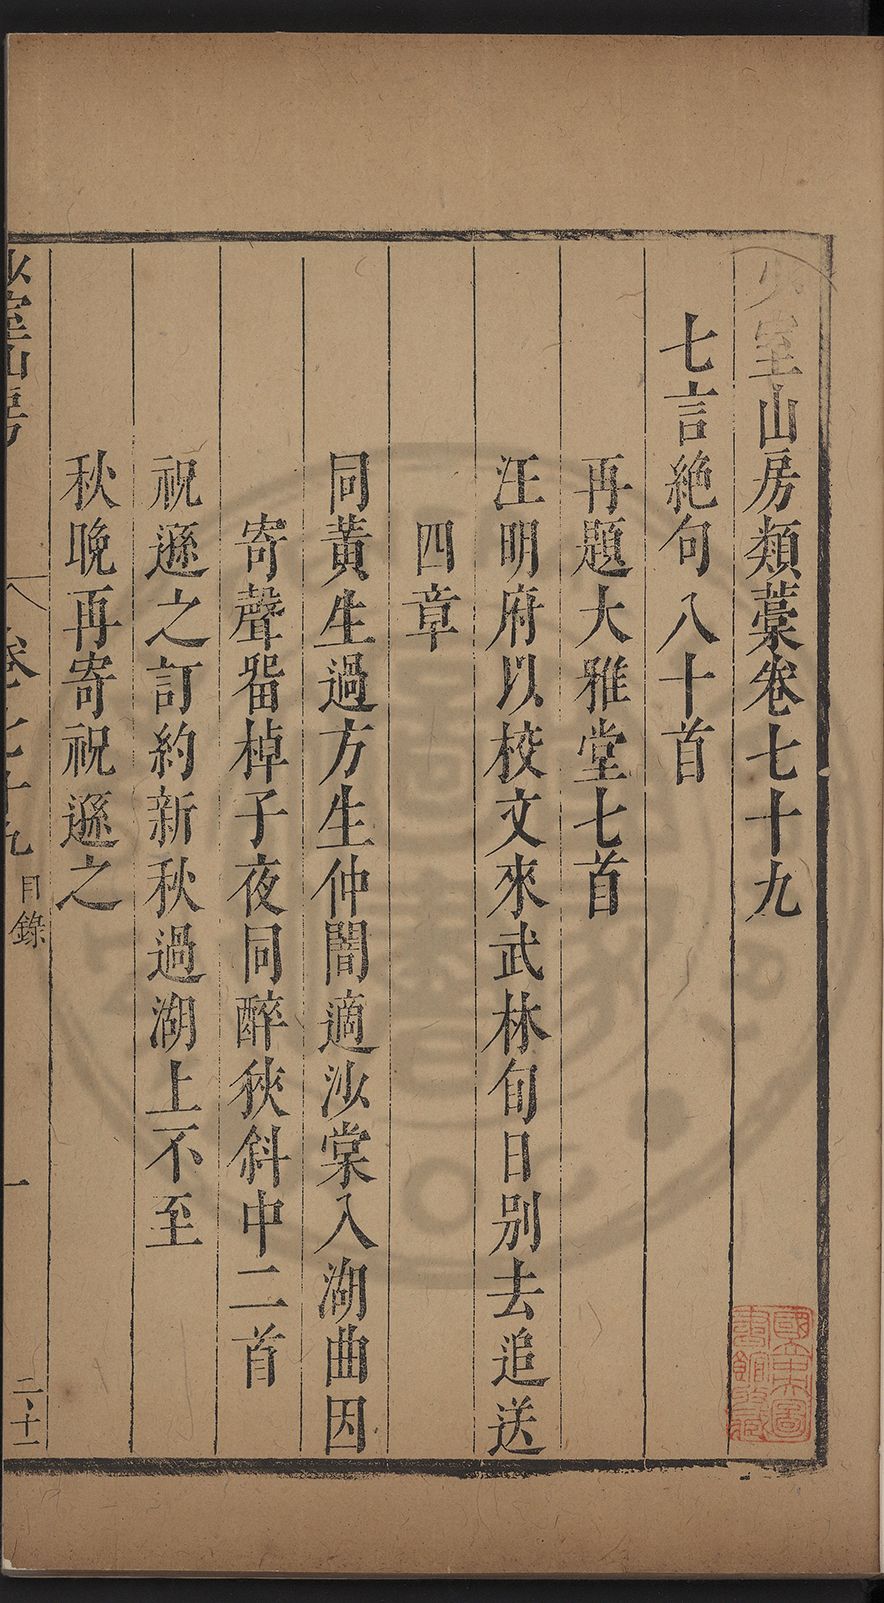 少室山房類藳卷七十九
七言絶句八十首
再題大雅堂七首
汪明府以校文來武林旬日别去追送
四章
同黄生過方生仲闇適沙棠入湖曲因
寄聲畱棹子夜同醉狹斜中二首
祝遜之訂約新秋過湖上不至
秋晚再寄祝遜之
少室山房
卷之七十九
目錄
一
二十一
國立中央圖書館收藏